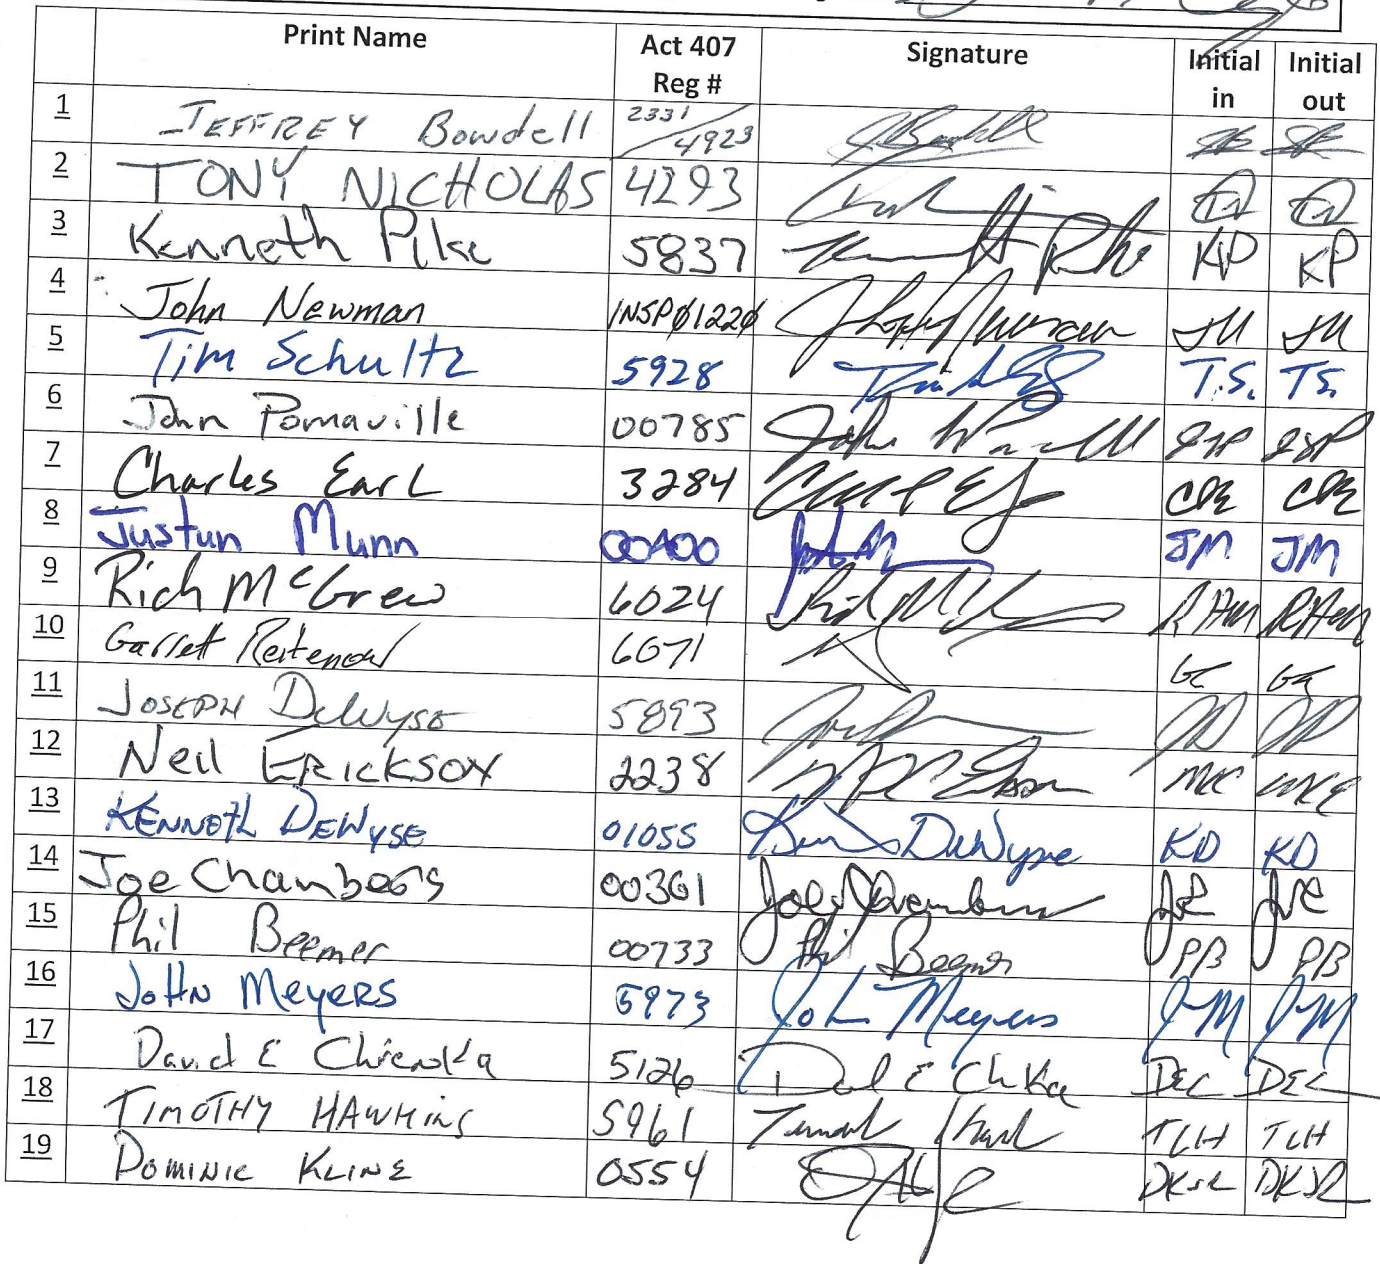 Print Name Act 407 Reg # Signature Initial in Initial out
1 JEFFREY Bowdell 2331/4923
2 TONY NICHOLAS 4293
3 Kenneth Pike 5837 KP KP
4 John Newman INSP01220 JN JN
5 Tim Schultz 5928 T.S. TS.
6 John Pomaville 00785
7 Charles Earl 3284
8 Justun Munn 00A00 JM JM
9 Rich McGrew 6024 RHM RHM
10 Garrett Reitenour 6071
11 JOSEPH DeWyse 5893 JD JD
12 Neil ERICKSON 2238
13 KENNETH DEWYSE 01055 Ken DeWyse KD KD
14 Joe Chambers 00361
15 Phil Beemer 00733 Phil Beemer PB PB
16 JOHN MEYERS 5973 John Meyers JM JM
17 David E 5126 DEC DEC
18 TIMOTHY HAWKINS 5961 TCH TCH
19 DOMINIC KLINE 0554 DKSR DKSR